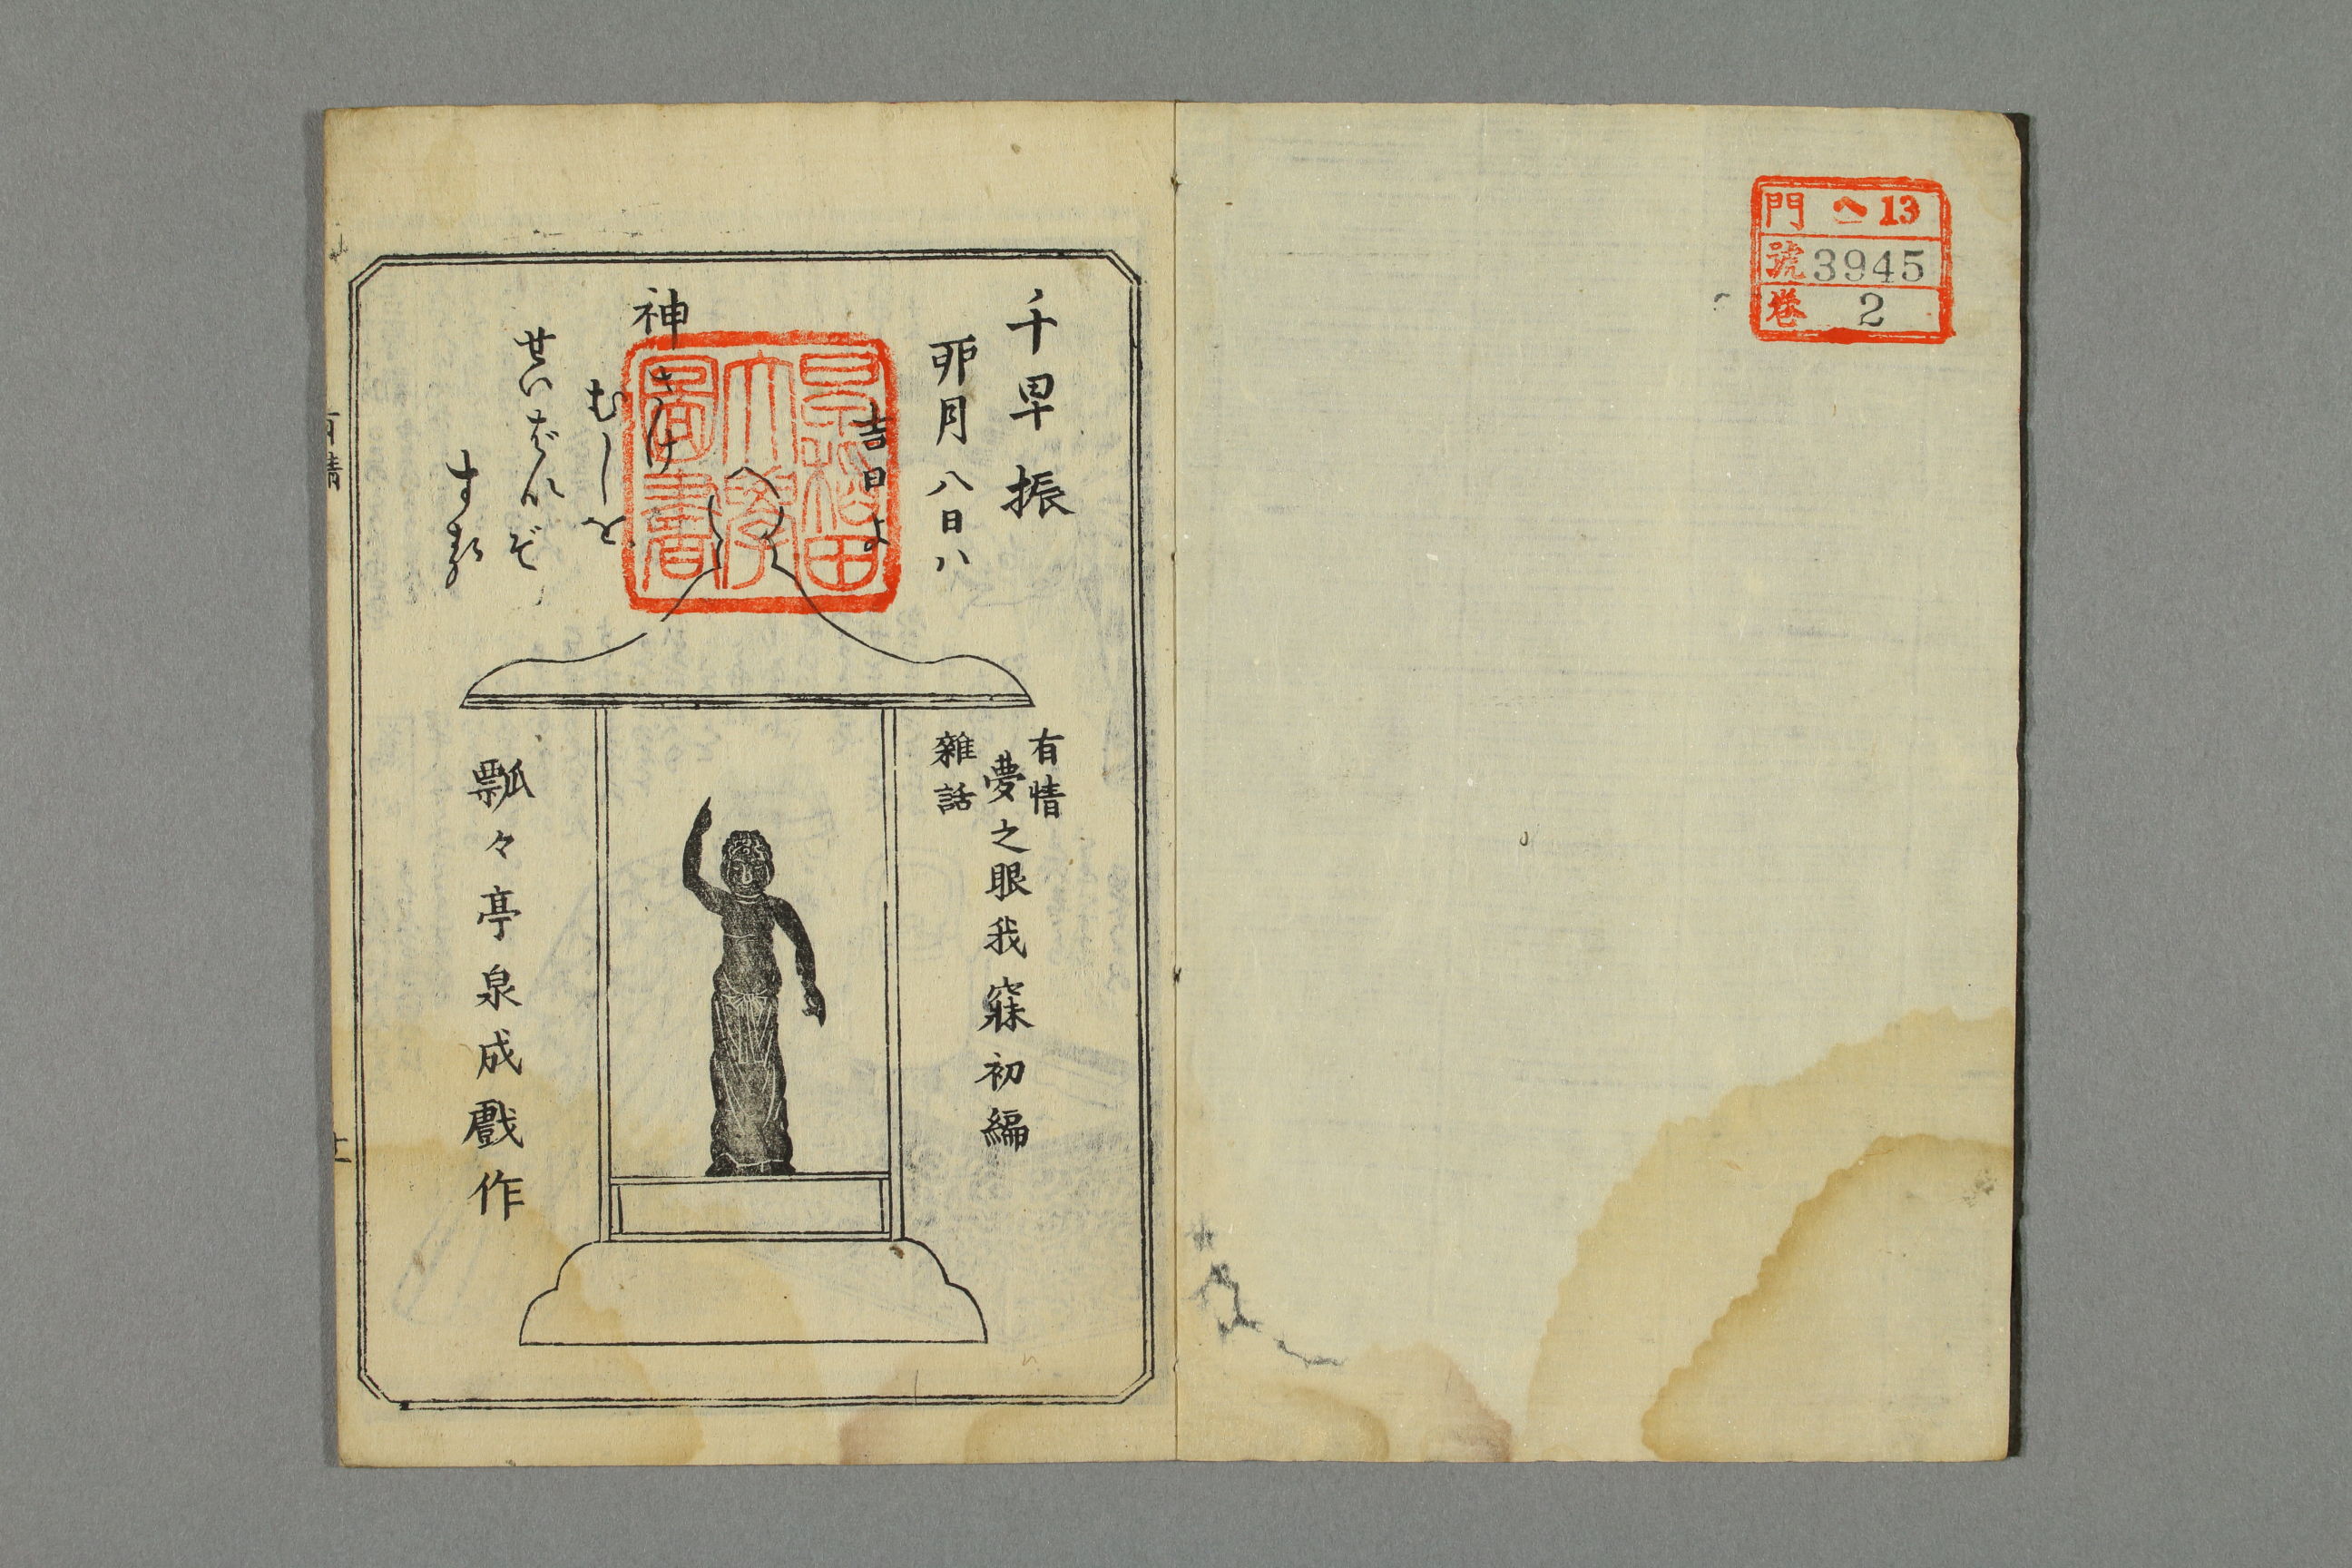 門 ヘ 13
號 3945
卷 2
千早振
卯月八日ハ
吉日よ
神さけ
むしを
せいばいぞ
する
早稲田
大學
圖書
有情
雜話
夢之眼我寐初編
瓢々亭泉成戯作
有情
上